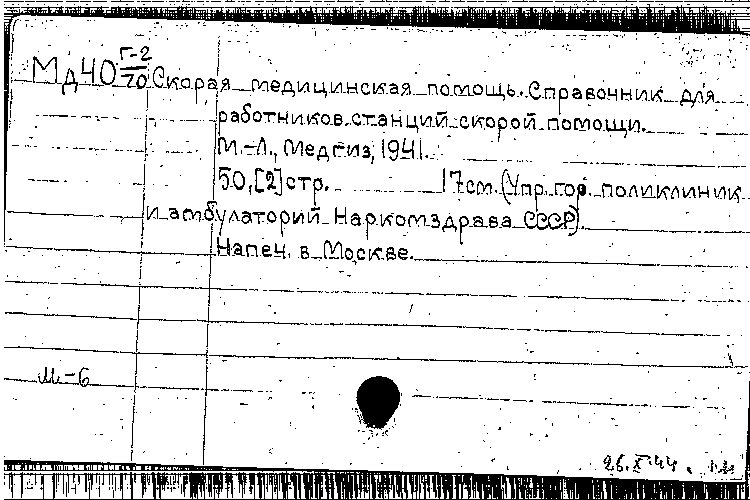 Мд40 Г-2/70 Скорая медицинская помощь. Справочник для
работников станций скорой помощи.
М.-Л., Медгиз, 1941.
50, [2] стр. 17см. (Упр. гор. поликлиник
и амбулаторий Наркомздрава СССР).
Напеч. в Москве.
М-6
26.X 44.